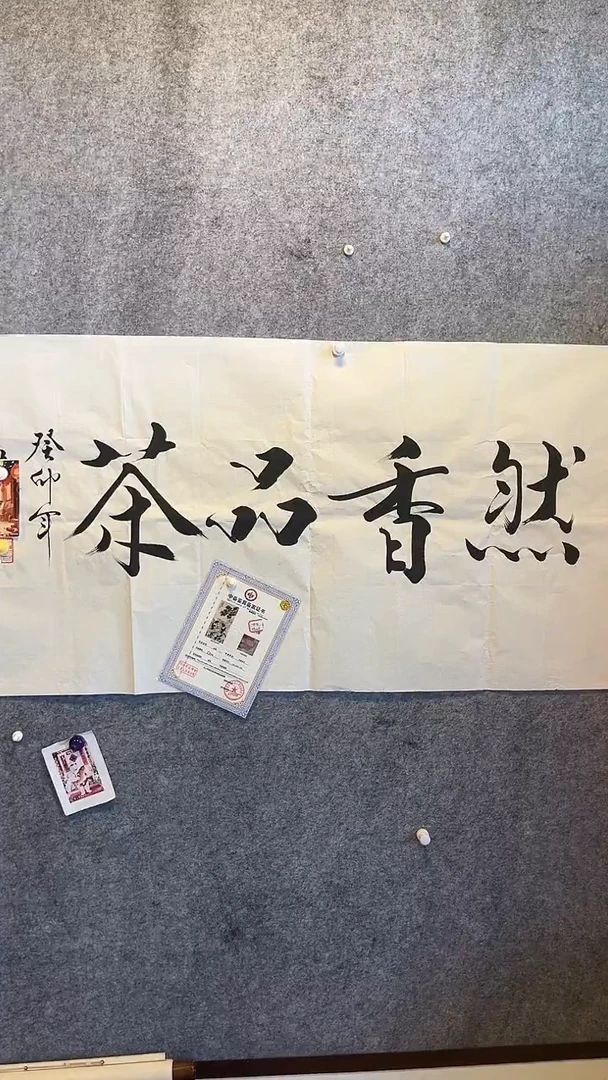 然香品茶
癸卯年